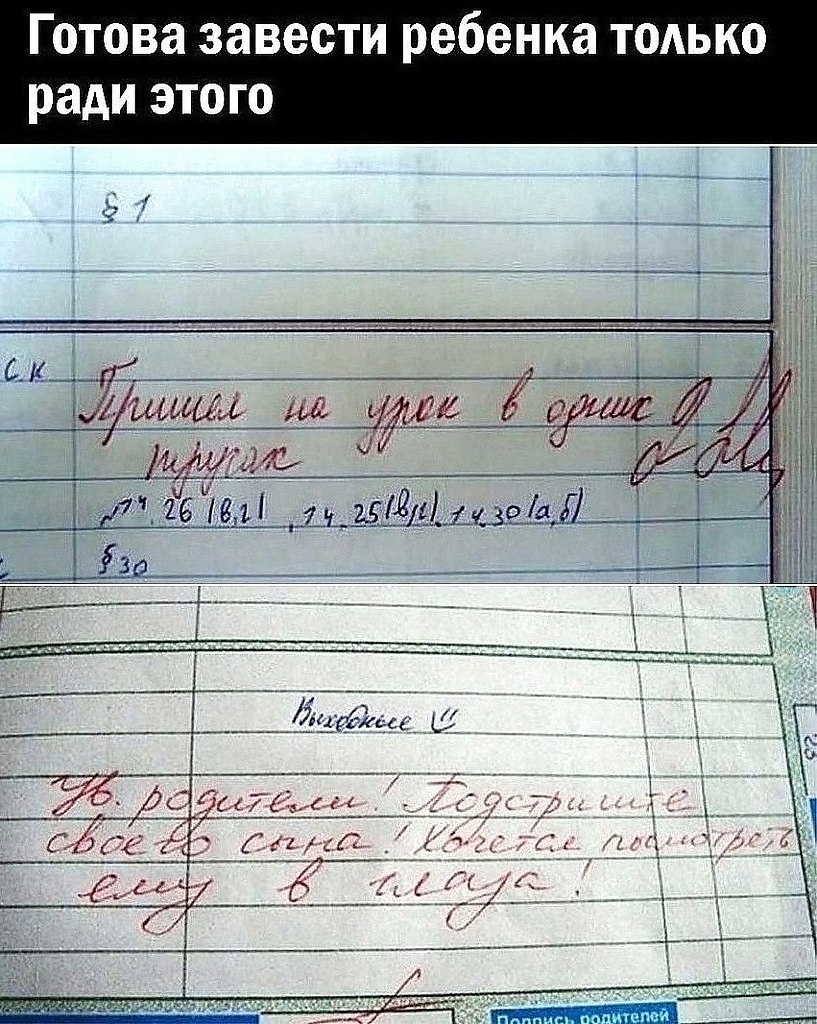 Готова завести ребенка только
ради этого
§ 1
ск
Пришел на урок в одних
трусах
№14.26 (в,г), 14.25(в,г), 14.30(а,б)
§ 30
Выходные
Ув. родители! Подстригите
своего сына! Хочется посмотреть
ему в глаза!
Подпись родителей